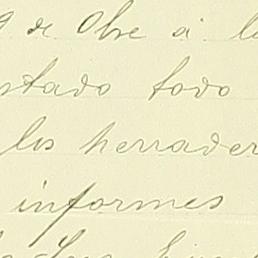 9 de Obre á l
stado todo
los herrader
informes